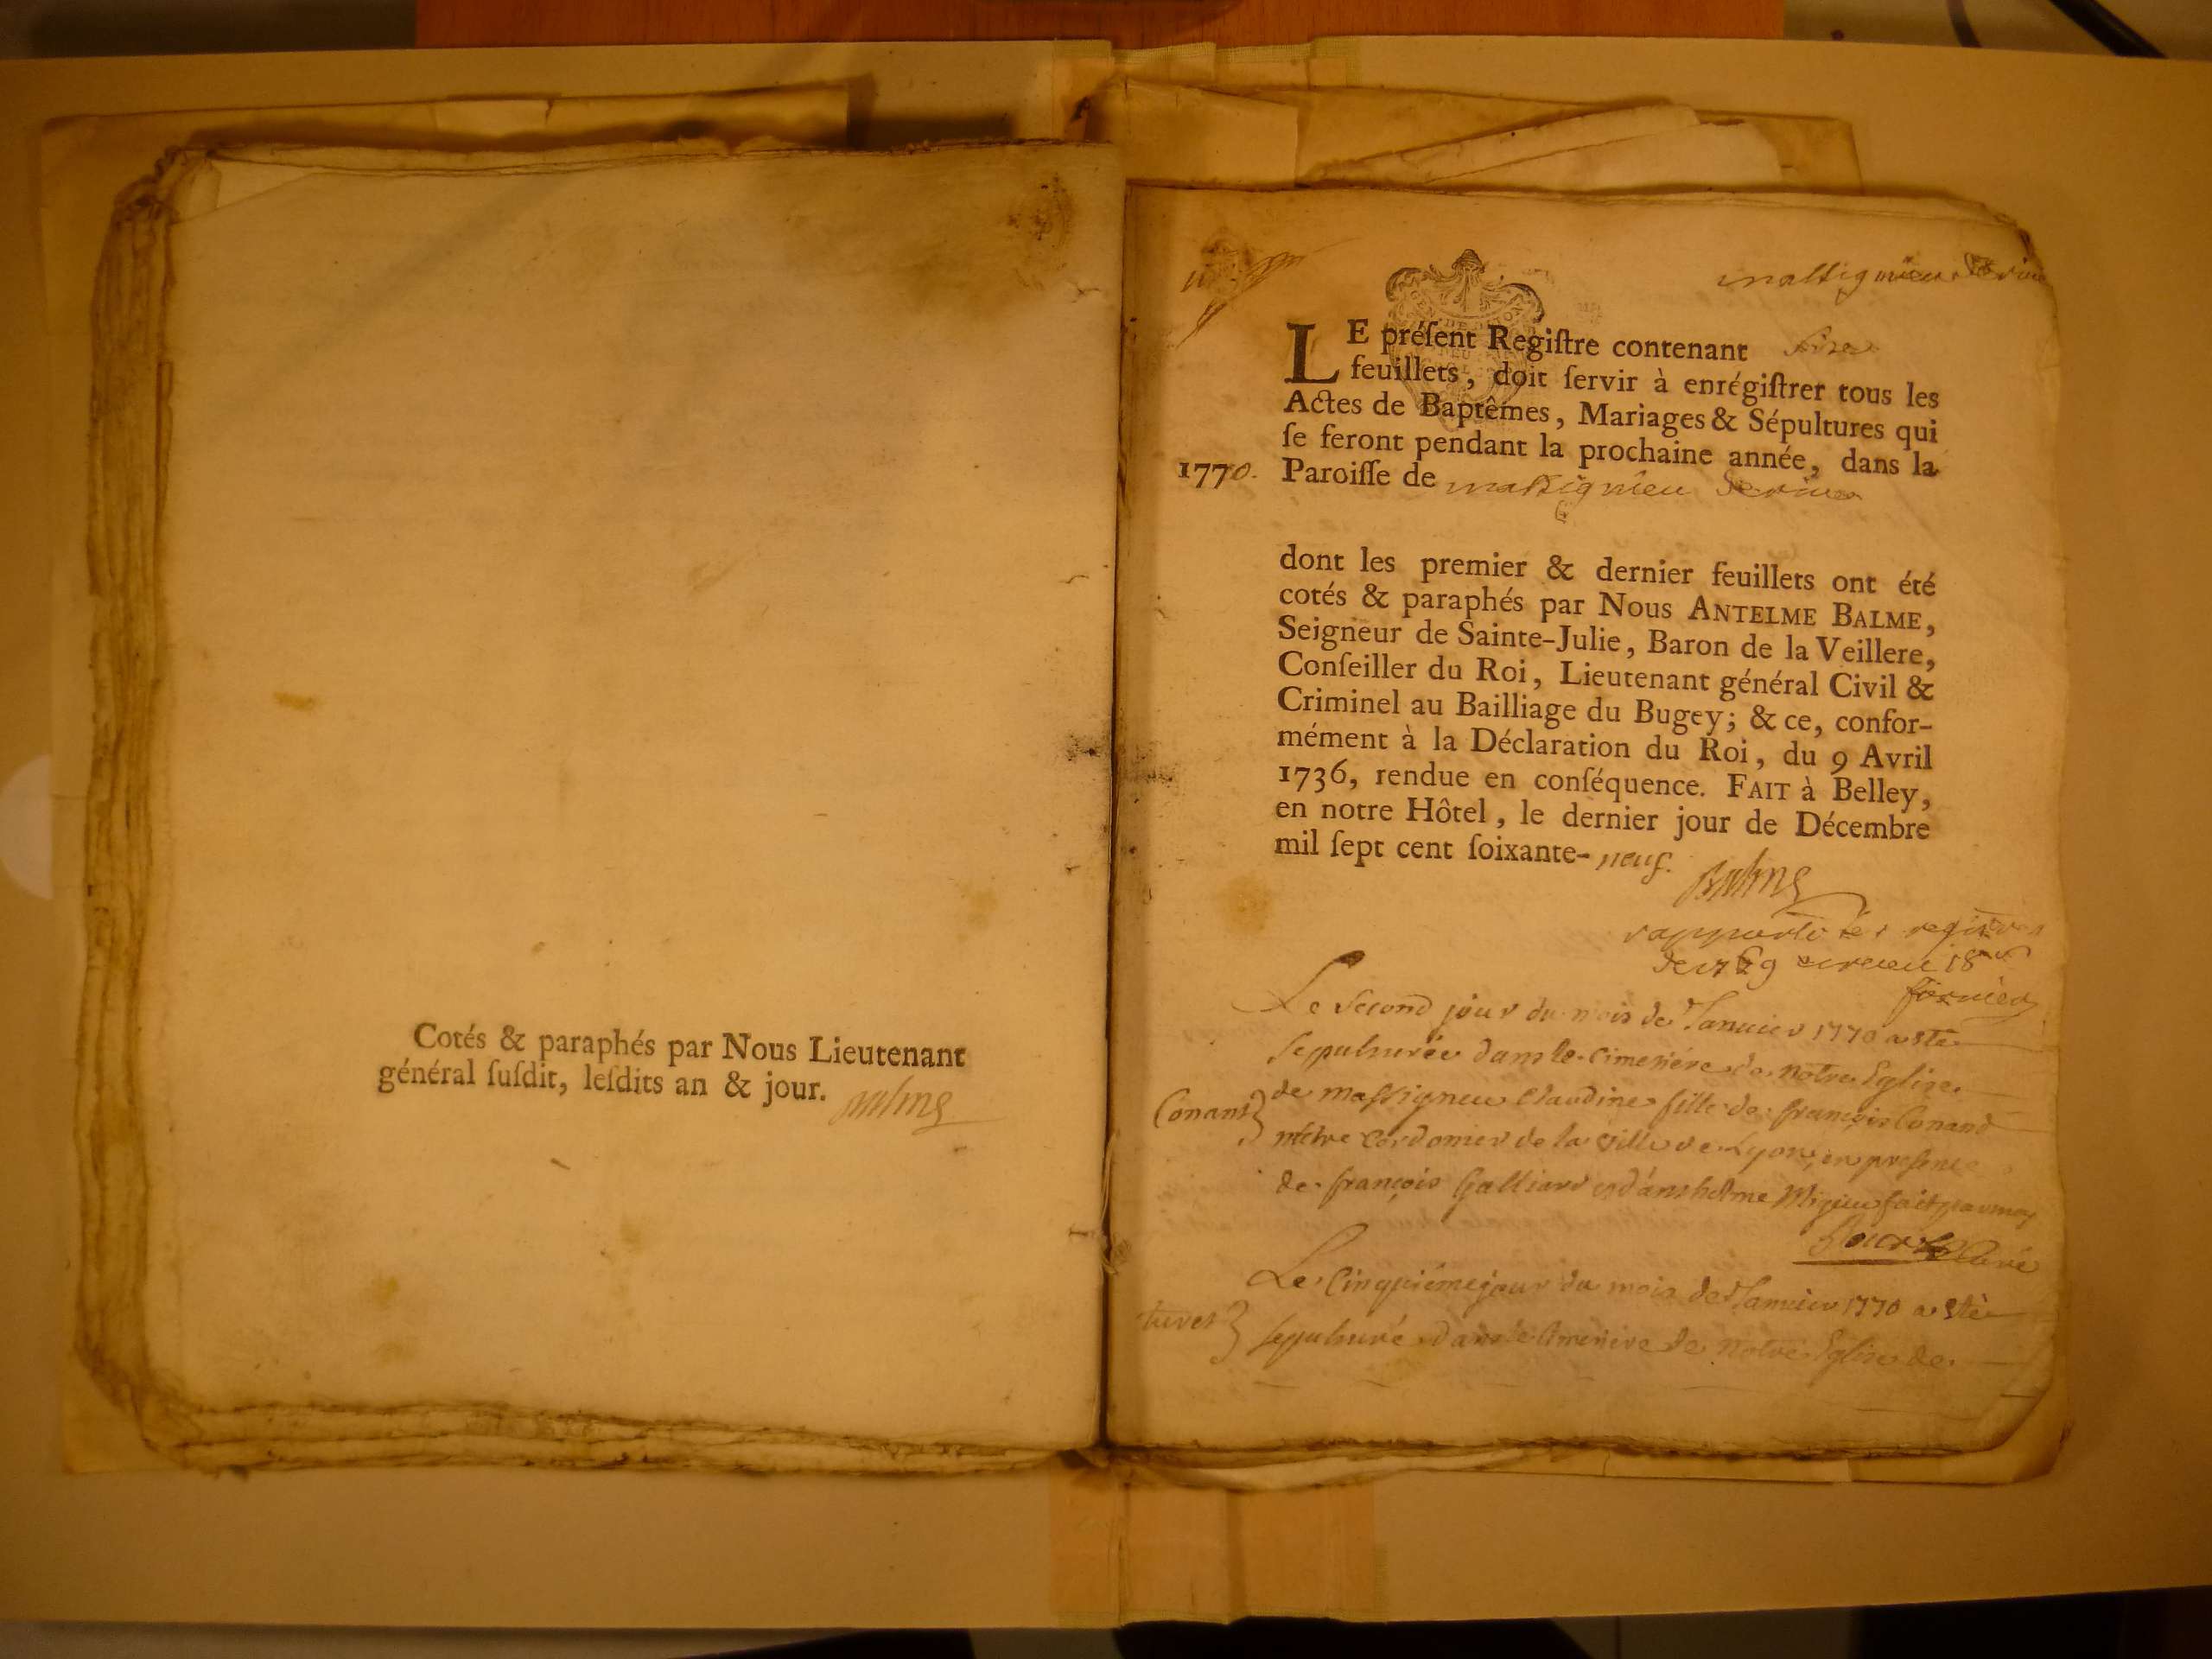 Cotés & paraphés par Nous Lieutenant
général ſuſdit, leſdits an & jour.
Balme
LE préſent Regiſtre contenant
feuillets, doit ſervir à enrégiſtrer tous les
Actes de Baptêmes, Mariages & Sépultures qui
ſe feront pendant la prochaine année, dans la
1770. Paroiſſe de
dont les premier & dernier feuillets ont été
cotés & paraphés par Nous ANTELME BALME,
Seigneur de Sainte-Julie, Baron de la Veillere,
Conſeiller du Roi, Lieutenant général Civil &
Criminel au Bailliage du Bugey; & ce, confor-
mément à la Déclaration du Roi, du 9 Avril
1736, rendue en conſéquence. FAIT à Belley,
en notre Hôtel, le dernier jour de Décembre
mil ſept cent ſoixante-neuf.
Balme
Le Second jour du mois de Janvier 1770 a ete
sepulturée dans le Cimetiére de notre Eglise
de massigneu Claudine fille de françois Conand
Conand
mètre Cordonier de la ville de Lyon, en presence
de françois Galliard et d'anthelme Migieu fait par moy
Curé
Le Cinquiéme jour du mois de Janvier 1770 a eté
sepulturé dans le Cimetiére de notre Eglise de